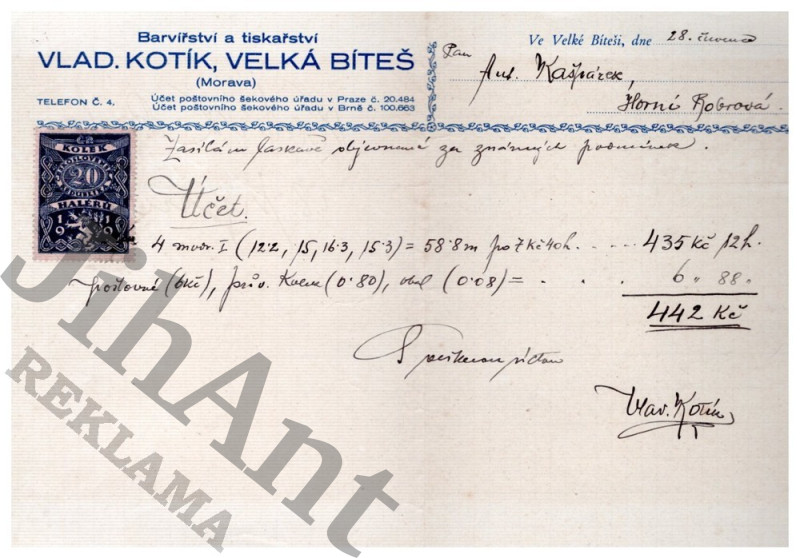 Barvířství a tiskařství
VLAD. KOTÍK, VELKÁ BÍTEŠ
(Morava)
TELEFON Č. 4.
Účet poštovního šekového úřadu v Praze č. 20.484
Účet poštovního šekového úřadu v Brně č. 100.663
Ve Velké Bíteši, dne 28. června
Pan
Ant. Kašpárek,
Horní Bobrová.
KOLEK
20
HALÉŘŮ
1919
Zasílám laskavě objednané za známých podmínek.
Účet.
4 modr. I (12.2, 15, 16.3, 15.3) = 58.8 m po 7 Kč 40 h. . . . . 435 Kč 12 h.
poštovné (6 Kč), prův. Kolek (0.80), obal (0.08) = . . . 6 „ 88 „
442 Kč
S poškerou úctou
Vlad. Kotík
JihAnt
REKLAMA